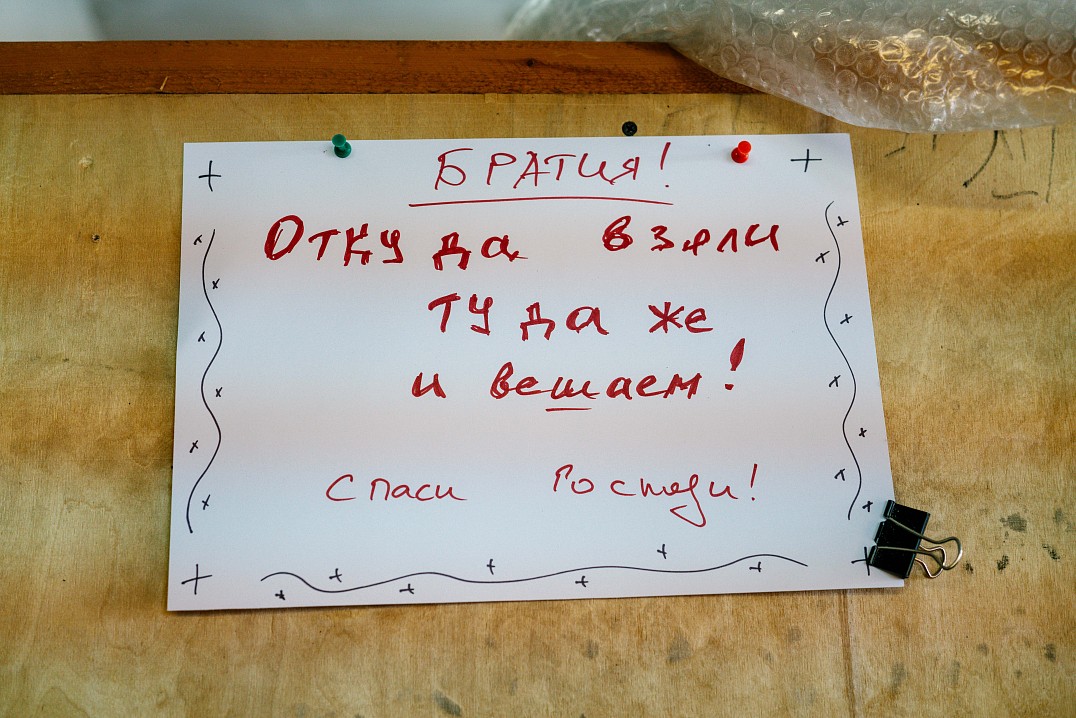 БРАТИЯ!
Откуда взяли
туда же
и вешаем!
Спаси Господи!